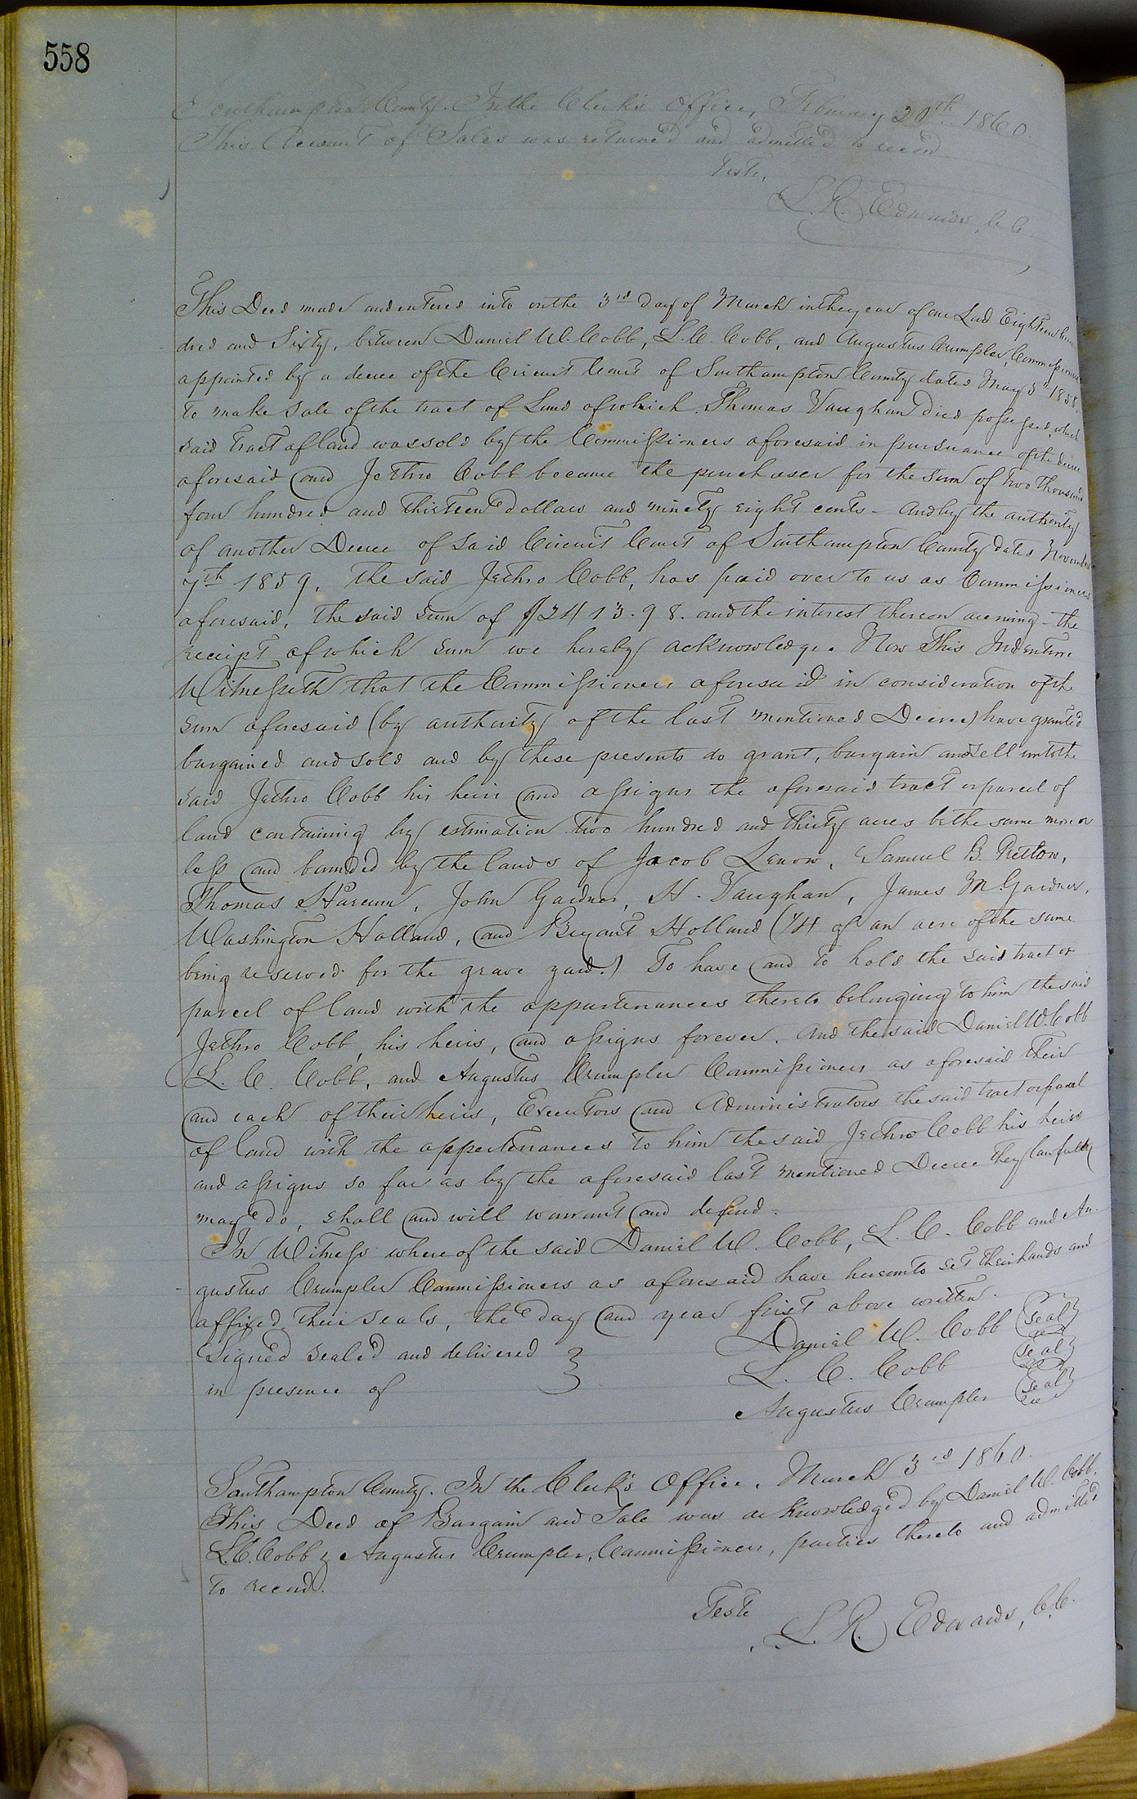 558
Southampton County. In the Clerk's Office, February 20th 1860.
This Account of Sales was returned and admitted to record
Teste,
L. R. Edwards, C.C.
This Deed made and entered into on the 3rd day of March in the year of our Lord Eighteen hun
dred and Sixty, between Daniel W. Cobb, L. C. Cobb, and Augustus Crumpler, Commissioners
appointed by a decree of the Circuit Court of Southampton County dated May 5th 1858,
to make Sale of the tract of Land of which Thomas Vaughan died possessed, which
said tract of land was sold by the Commissioners aforesaid in pursuance of the decree
aforesaid and Jethro Cobb became the purchaser for the sum of two thousand
four hundred and thirteen dollars and ninety eight cents - And by the authority
of another Decree of said Circuit Court of Southampton County dated November
7th 1859, the said Jethro Cobb, has paid over to us as Commissioners
aforesaid, the said sum of $2413.98. and the interest thereon accruing - the
receipt of which sum we hereby acknowledge. Now This Indenture
Witnesseth that the Commissioners aforesaid in consideration of the
sum aforesaid (by authority of the last mentioned Decree) have granted
bargained and sold and by these presents do grant, bargain and sell unto the
said Jethro Cobb his heirs and assigns the aforesaid tract or parcel of
land containing by estimation two hundred and thirty acres be the same more or
less and bounded by the lands of Jacob Lenow, Samuel B. Kitton,
Thomas Harcum, John Gardner, H. Vaughan, James M Gardner,
Washington Holland, and Bryant Holland (1/4 of an acre of the same
being reserved for the grave yard.) To have and to hold the said tract or
parcel of land with the appurtenances thereto belonging to him the said
Jethro Cobb, his heirs, and assigns forever. And the said Daniel W. Cobb
L. C. Cobb, and Augustus Crumpler Commissioners as aforesaid their
and each of their heirs, Executors and Administrators the said tract or parcel
of land with the appurtenances to him the said Jethro Cobb his heirs
and assigns so far as by the aforesaid last mentioned Decree they lawfully
may do, shall and will warrant and defend.
In Witness whereof the said Daniel W. Cobb, L. C. Cobb and Au-
gustus Crumpler Commissioners as aforesaid have hereunto set their hands and
affixed their seals, the day and year first above written.
Signed Sealed and delivered } Daniel W. Cobb (seal)
in presence of L. C. Cobb (seal)
Augustus Crumpler (seal)
Southampton County. In the Clerk's Office. March 3rd 1860.
This Deed of Bargain and Sale was acknowledged by Daniel W. Cobb,
L. C. Cobb & Augustus Crumpler, Commissioners, parties thereto and admitted
to record.
Teste
L. R. Edwards, C.C.